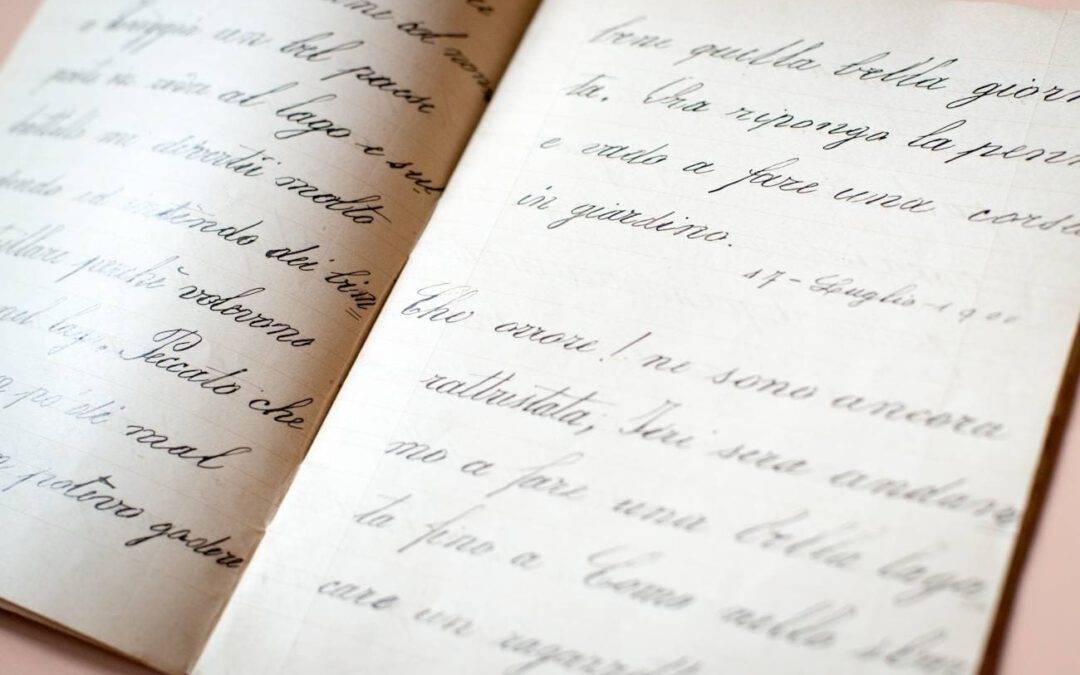 un bel paese
al lago e sul
battello mi divertii molto
ed sentendo dei bim=
perchè volevano
nel lago. Peccato che
po' di mal
potevo godere
bene quella bella giorn
ta. Ora ripongo la penn
e vado a fare una corsa
in giardino.
17 - Luglio - 1900
Che orrore! ne sono ancora
rattristata; Ieri sera andam
mo a fare una bella laga
ta fino a Como nello sbar
care un ragazz